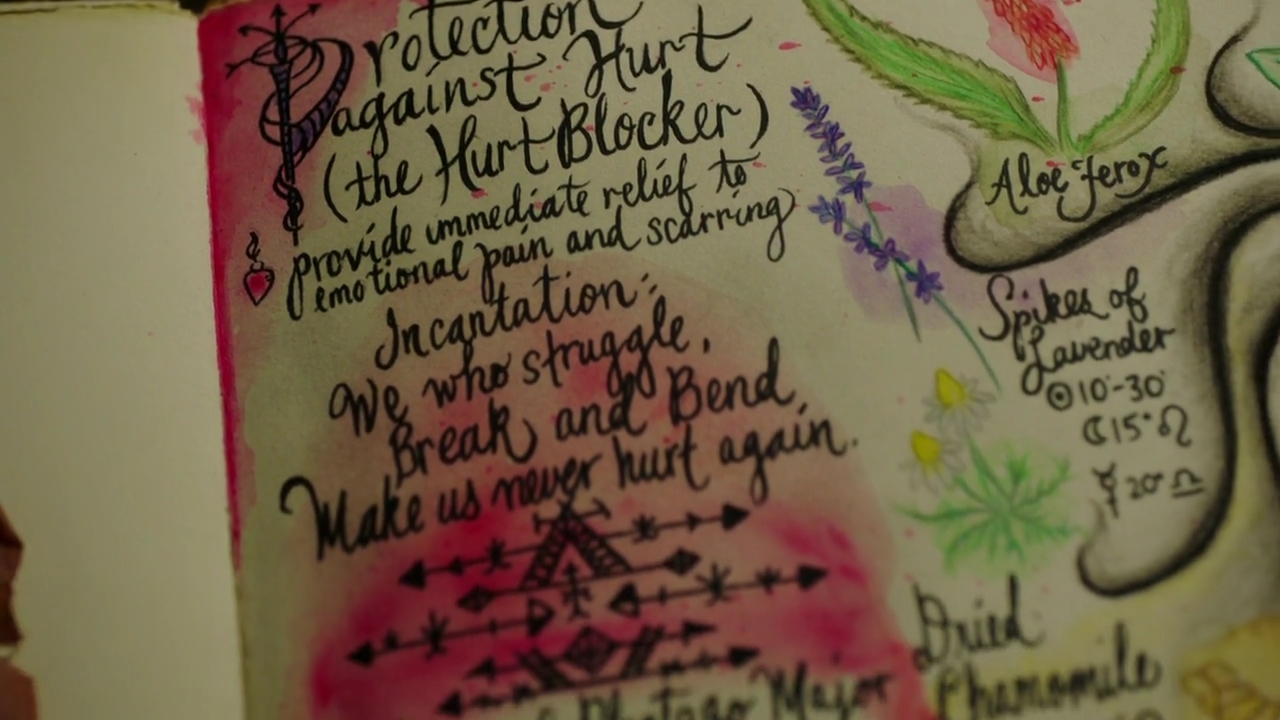 Protection
against Hurt
(the Hurt Blocker)
provide immediate relief to
emotional pain and scarring
Incantation:
We who struggle,
Break and Bend
Make us never hurt again.
Major
Aloe ferox
Spikes of
Lavender
☉10°-30°
☾15°♌
☿20°♎
Dried
Chamomile